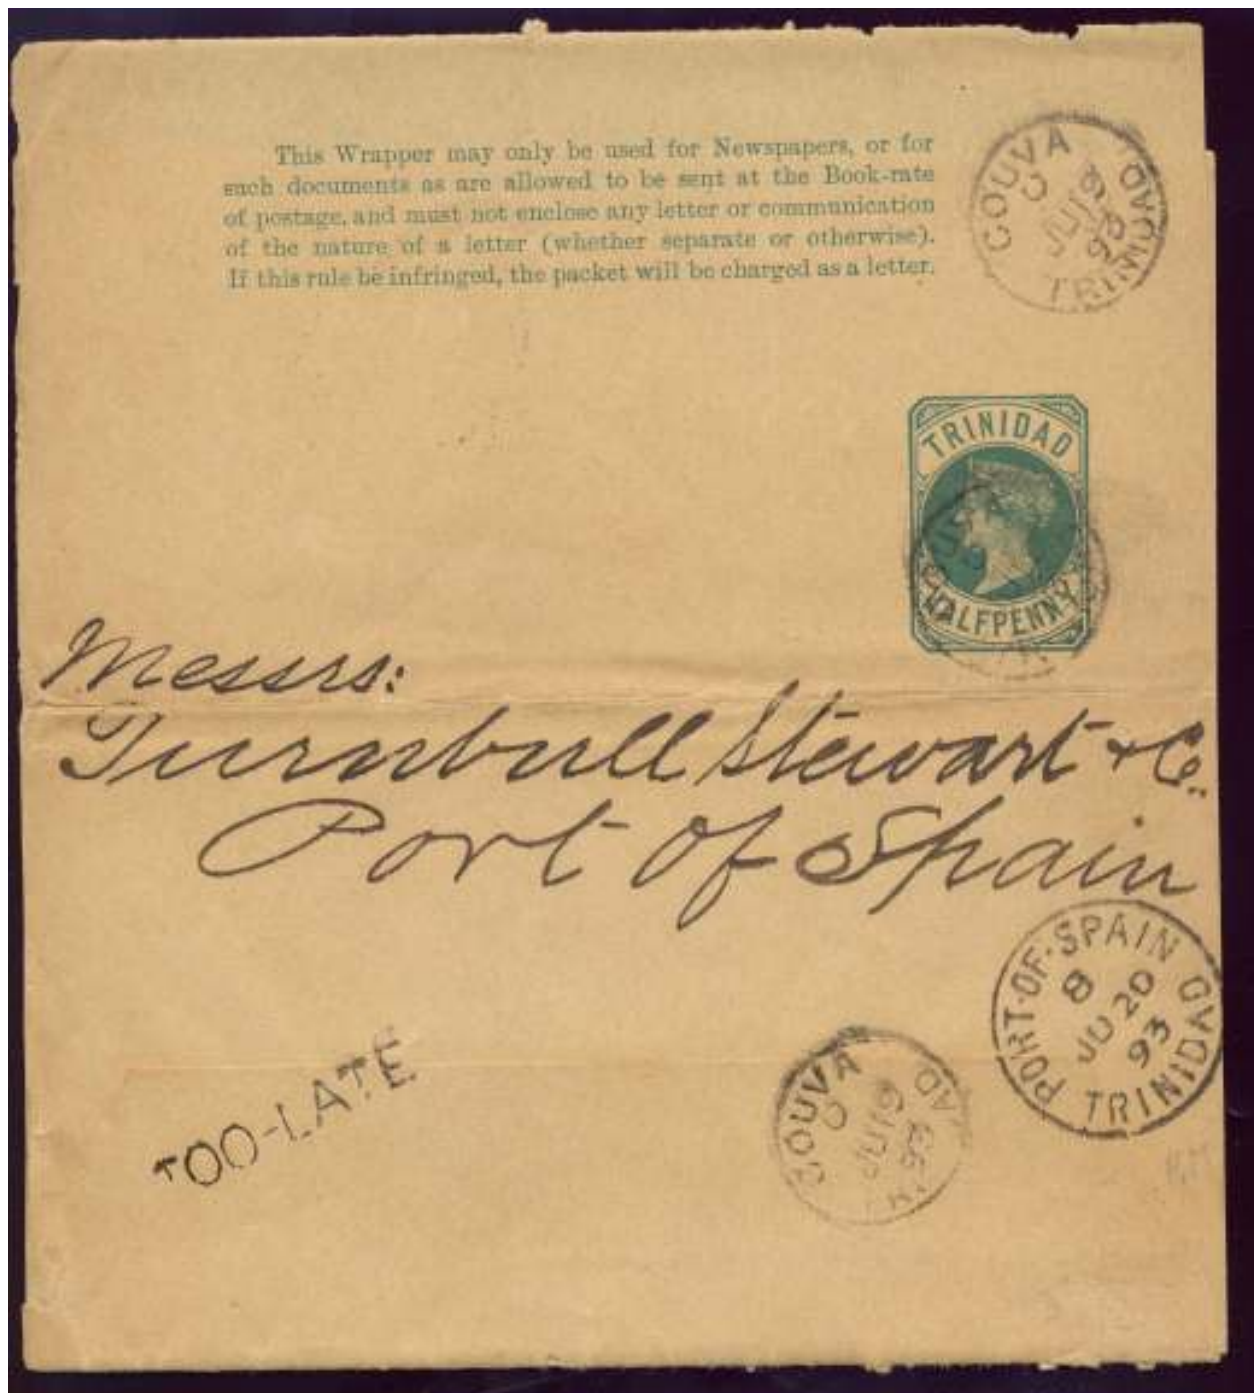 This Wrapper may only be used for Newspapers, or for
such documents as are allowed to be sent at the Book-rate
of postage, and must not enclose any letter or communication
of the nature of a letter (whether separate or otherwise).
If this rule be infringed, the packet will be charged as a letter.
COUVA
C
JU 19
93
TRINIDAD
TRINIDAD
HALFPENNY
Messrs:
Turnbull Stewart & Co.
Port of Spain
PORT-OF-SPAIN
8
JU 20
93
TRINIDAD
TOO-LATE
COUVA
C
JU 19
93